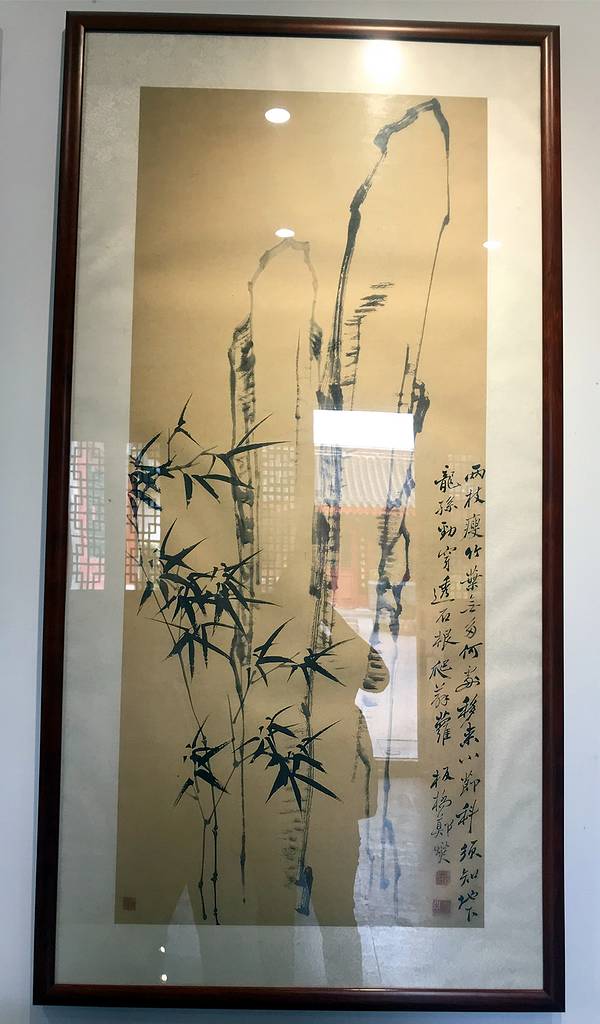 两枝瘦竹葉无多何處移來小節科須知地下
龍孫勁穿透石根爬薜蘿
板橋鄭燮